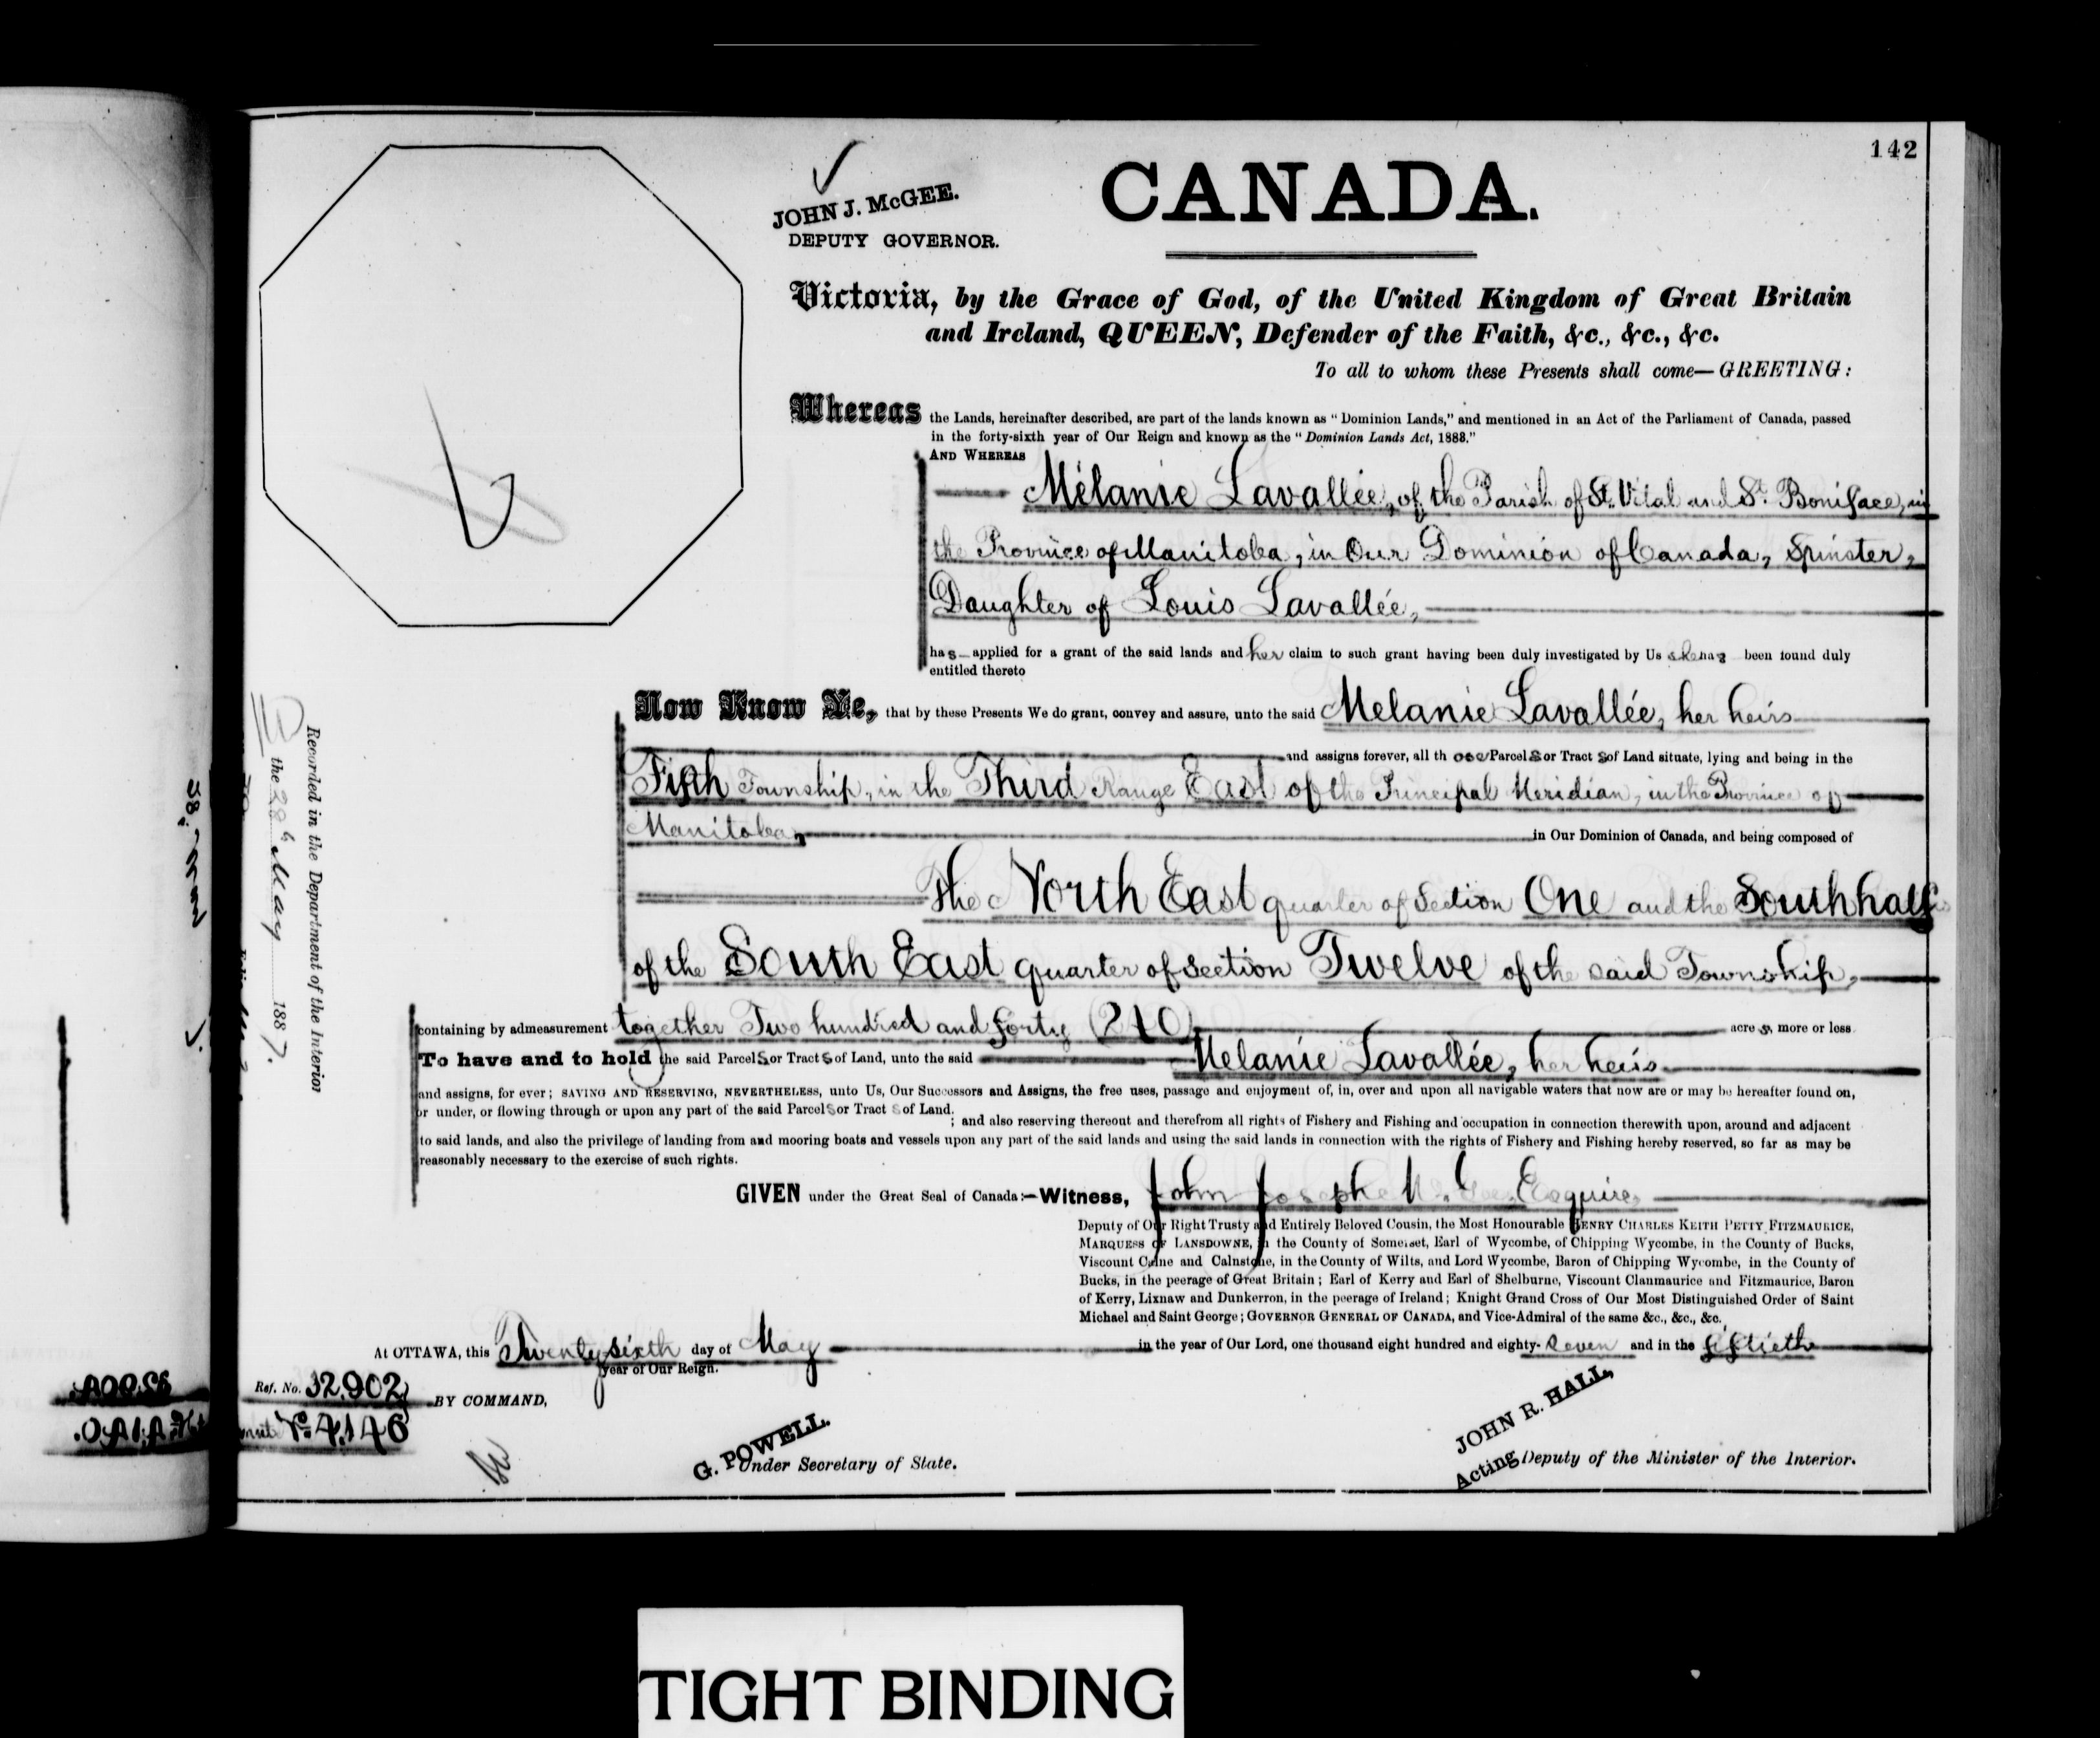 142
JOHN J. McGEE.
DEPUTY GOVERNOR.
CANADA.
Victoria, by the Grace of God, of the United Kingdom of Great Britain
and Ireland, QUEEN, Defender of the Faith, &c., &c., &c.
To all to whom these Presents shall come—GREETING:
Whereas the Lands, hereinafter described, are part of the lands known as "Dominion Lands," and mentioned in an Act of the Parliament of Canada, passed
in the forty-sixth year of Our Reign and known as the "Dominion Lands Act, 1883."
AND WHEREAS
Mélanie Lavallée, of the Parish of St. Vital and St. Boniface, in
the Province of Manitoba, in Our Dominion of Canada, Spinster,
Daughter of Louis Lavallée,
has applied for a grant of the said lands and her claim to such grant having been duly investigated by Us she has been found duly
entitled thereto
Now Know Ye, that by these Presents We do grant, convey and assure, unto the said Melanie Lavallée, her heirs
and assigns forever, all those Parcels or Tracts of Land situate, lying and being in the
Fifth Township, in the Third Range East of the Principal Meridian, in the Province of
Manitoba, in Our Dominion of Canada, and being composed of
The North East quarter of Section One and the South half
of the South East quarter of Section Twelve of the said Township,
containing by admeasurement together Two hundred and forty (240) acres, more or less
To have and to hold the said Parcels or Tracts of Land, unto the said Melanie Lavallée, her heirs
and assigns, for ever; SAVING AND RESERVING, NEVERTHELESS, unto Us, Our Successors and Assigns, the free uses, passage and enjoyment of, in, over and upon all navigable waters that now are or may be hereafter found on,
or under, or flowing through or upon any part of the said Parcels or Tracts of Land.
; and also reserving thereout and therefrom all rights of Fishery and Fishing and occupation in connection therewith upon, around and adjacent
to said lands, and also the privilege of landing from and mooring boats and vessels upon any part of the said lands and using the said lands in connection with the rights of Fishery and Fishing hereby reserved, so far as may be
reasonably necessary to the exercise of such rights.
GIVEN under the Great Seal of Canada:—Witness, John Joseph McGee, Esquire,
Deputy of Our Right Trusty and Entirely Beloved Cousin, the Most Honourable HENRY CHARLES KEITH PETTY FITZMAURICE,
MARQUESS OF LANSDOWNE, in the County of Somerset, Earl of Wycombe, of Chipping Wycombe, in the County of Bucks,
Viscount Calne and Calnstone, in the County of Wilts, and Lord Wycombe, Baron of Chipping Wycombe, in the County of
Bucks, in the peerage of Great Britain; Earl of Kerry and Earl of Shelburne, Viscount Clanmaurice and Fitzmaurice, Baron
of Kerry, Lixnaw and Dunkerron, in the peerage of Ireland; Knight Grand Cross of Our Most Distinguished Order of Saint
Michael and Saint George; GOVERNOR GENERAL OF CANADA, and Vice-Admiral of the same &c., &c., &c.
At OTTAWA, this Twenty sixth day of May in the year of Our Lord, one thousand eight hundred and eighty-seven and in the fiftieth
year of Our Reign.
Ref. No. 32,902
BY COMMAND,
No. 4,146
G. POWELL.
Under Secretary of State.
JOHN R. HALL,
Acting Deputy of the Minister of the Interior.
Recorded in the Department of the Interior
the 28th May 1887.
TIGHT BINDING